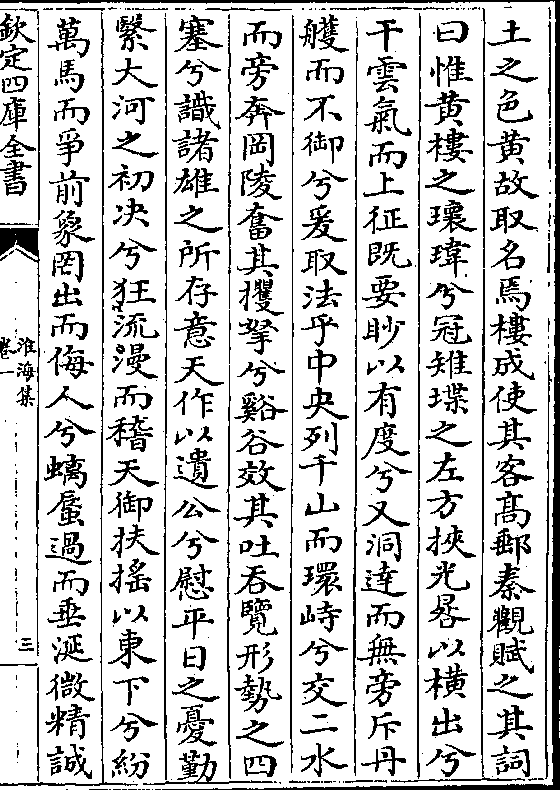 土之色黄故取名焉樓成使其客髙郵秦觀賦之其詞
曰惟黄樓之瓌瑋兮冠雉堞之左方挾光晷以横出兮
干雲氣而上征既要眇以有度兮又洞達而無旁斥丹
雘而不御兮爰取法乎中央列千山而環峙兮交二水
而旁奔岡陵奮其攫拏兮谿谷效其吐吞覽形勢之四
塞兮識諸雄之所存意天作以遺公兮慰平日之憂勤
繄大河之初决兮狂流漫而稽天御扶摇以東下兮紛
萬馬而爭前象罔出而侮人兮螭蜃過而垂涎微精誠
欽定四庫全書
淮海集
卷一
三